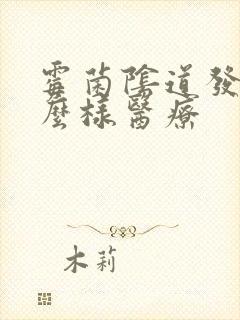 霉菌陰道發
麼樣醫療
木莉